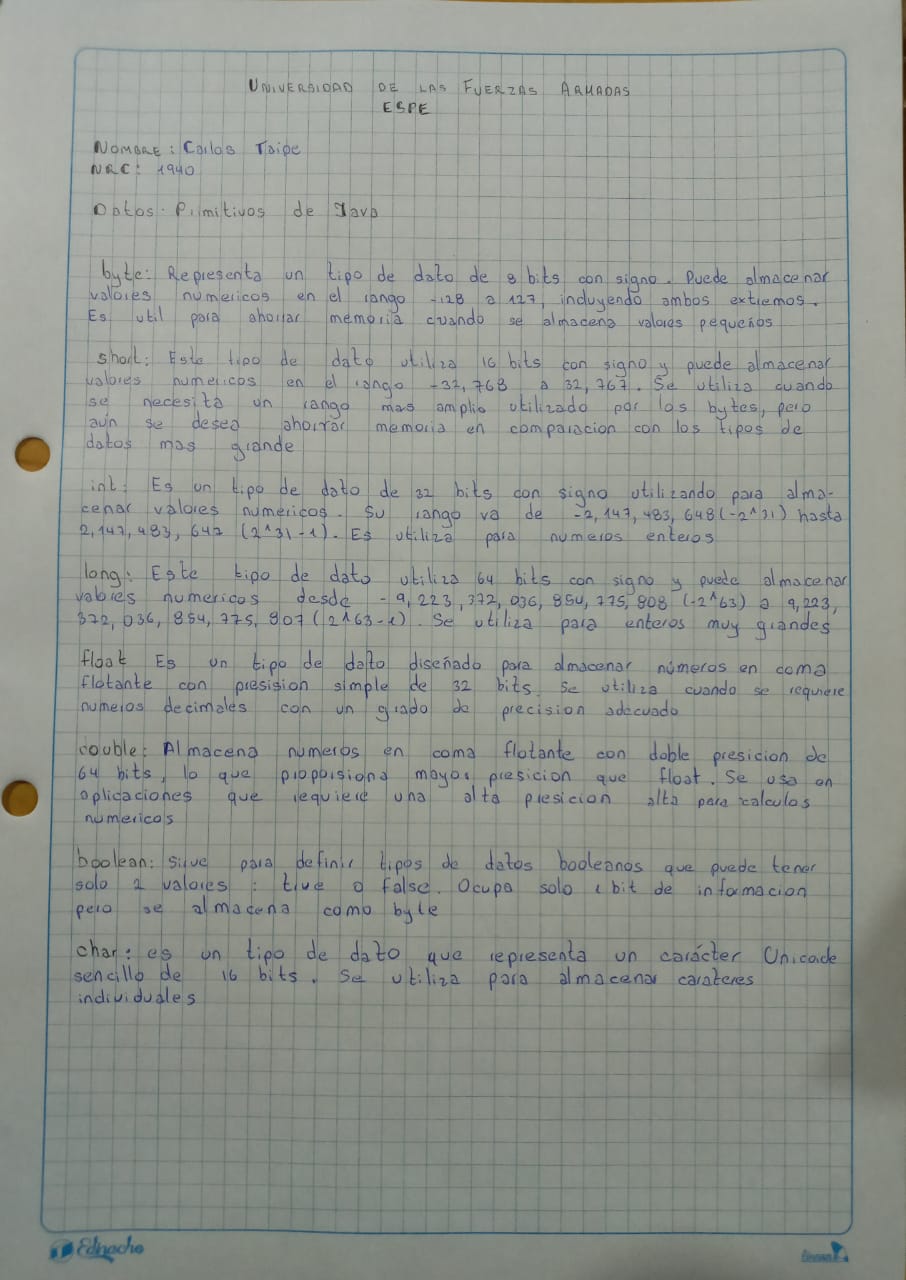 UNIVERSIDAD DE LAS FUERZAS ARMADAS
ESPE
NOMBRE: Carlos Taipe
NRC: 1940
Datos Primitivos de Java
byte: Representa un tipo de dato de 8 bits con signo. Puede almacenar
valores numericos en el rango -128 a 127, incluyendo ambos extremos.
Es util para ahorrar memoria cuando se almacena valores pequeños
short: Este tipo de dato utiliza 16 bits con signo y puede almacenar
valores numericos en el rango -32,768 a 32,767. Se utiliza cuando
se necesita un rango mas amplio utilizado por los bytes, pero
aún se desea ahorrar memoria en comparacion con los tipos de
datos mas grande
int: Es un tipo de dato de 32 bits con signo utilizando para alma-
cenar valores numéricos. Su rango va de -2,147,483,648(-2^31) hasta
2,147,483,647 (2^31-1). Es utiliza para numeros enteros
long: Este tipo de dato utiliza 64 bits con signo y puede almacenar
valores numericos desde -9,223,372,036,854,775,808 (-2^63) a 9,223,
372,036,854,775,807(2^63-1). Se utiliza para enteros muy grandes
float Es un tipo de dato diseñado para almacenar números en coma
flotante con presision simple de 32 bits. Se utiliza cuando se requiere
numeros decimales con un grado de precision adecuado
double: Almacena numeros en coma flotante con doble presicion de
64 bits, lo que proporsiona mayor presicion que float. Se usa en
aplicaciones que requiere una alta presicion alta para calculos
numericos
boolean: Sirve para definir tipos de datos booleanos que puede tener
solo 2 valores: true o false. Ocupa solo 1 bit de informacion
pero se almacena como byte
char: es un tipo de dato que representa un carácter Unicode
sencillo de 16 bits. Se utiliza para almacenar carateres
individuales
Edinacho